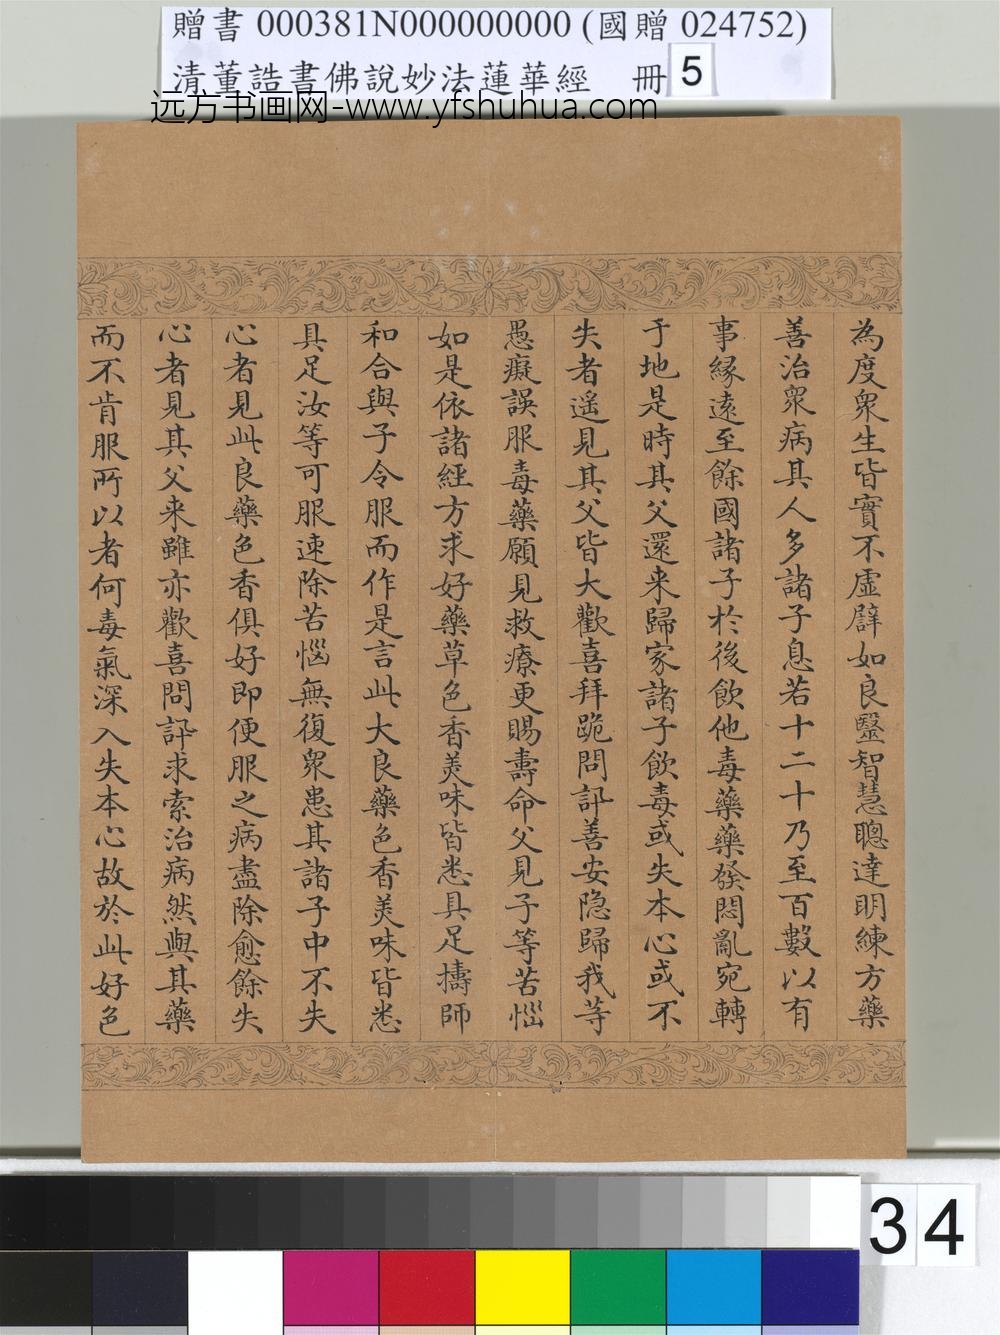 贈書 000381N000000000 (國贈 024752)
清董誥書佛說妙法蓮華經 冊 5
远方书画网-www.yfshuhua.com
為度眾生皆實不虛譬如良毉智慧聰達明練方藥
善治眾病其人多諸子息若十二十乃至百數以有
事緣遠至餘國諸子於後飲他毒藥藥發悶亂宛轉
于地是時其父還来歸家諸子飲毒或失本心或不
失者遥見其父皆大歡喜拜跪問訊善安隐歸我等
愚癡誤服毒藥願見救療更賜壽命父見子等苦惱
如是依諸經方求好藥草色香美味皆悉具足擣師
和合與子令服而作是言此大良藥色香美味皆悉
具足汝等可服速除苦惱無復眾患其諸子中不失
心者見此良藥色香俱好即便服之病盡除愈餘失
心者見其父来雖亦歡喜問訊求索治病然與其藥
而不肯服所以者何毒氣深入失本心故於此好色
34